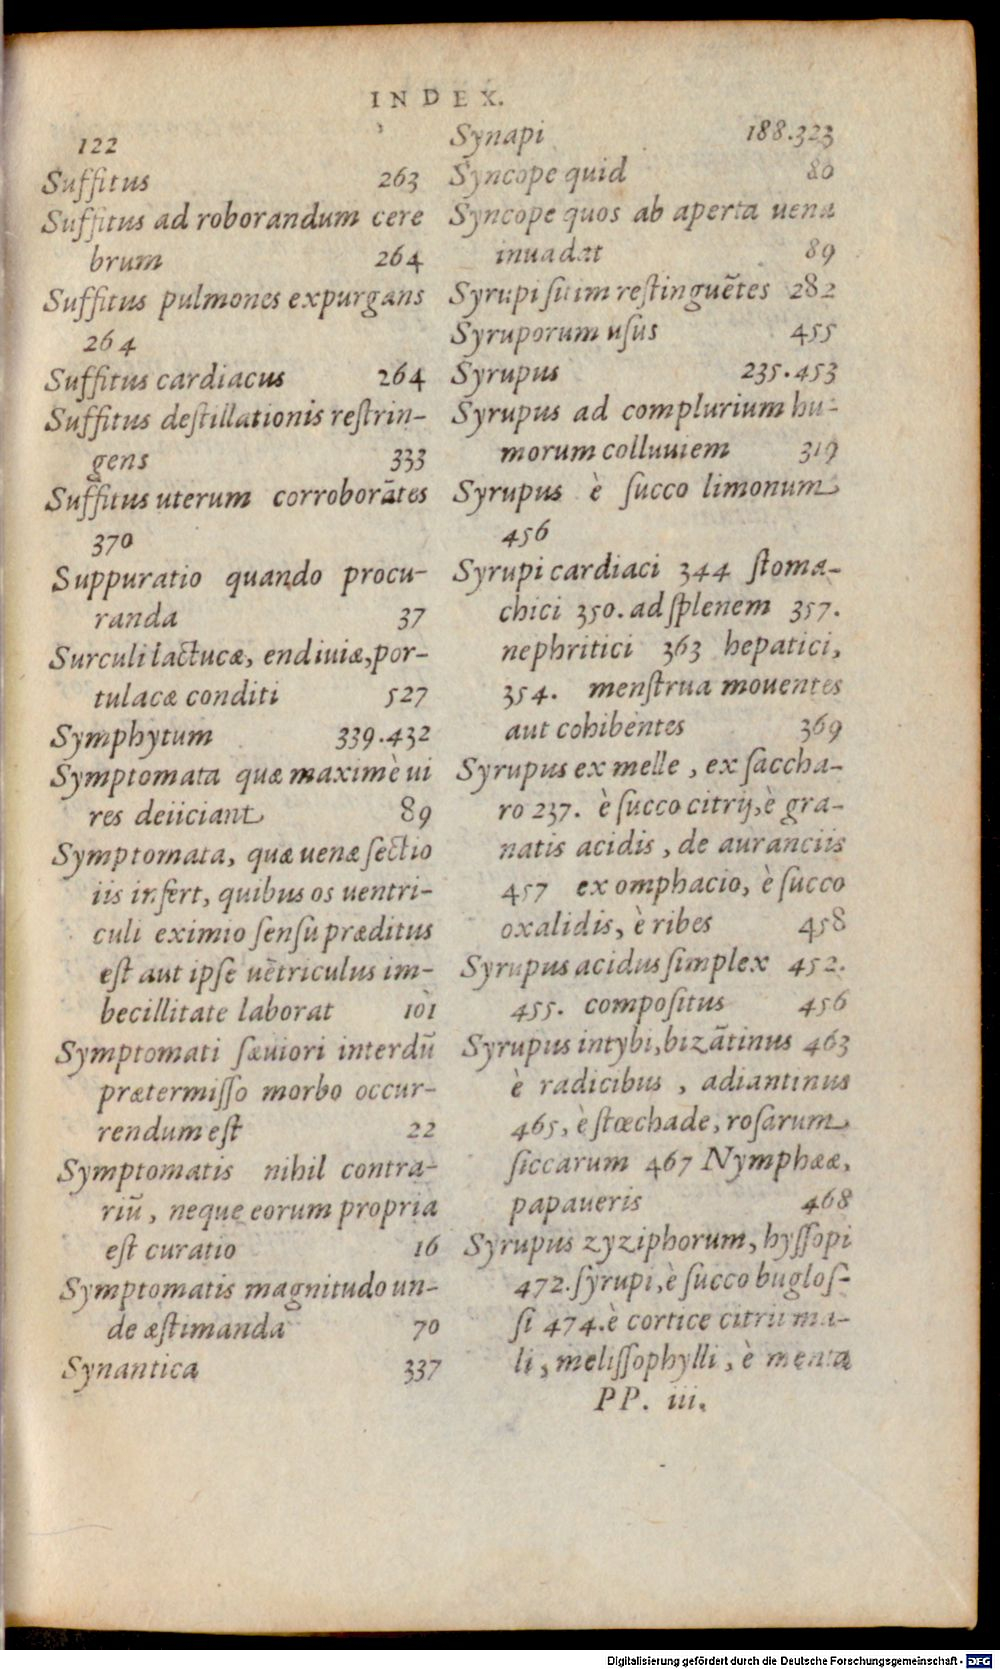 INDEX.
122
Suffitus 263
Suffitus ad roborandum cere
brum 264
Suffitus pulmones expurgans
264
Suffitus cardiacus 264
Suffitus deſtillationis reſtrin-
gens 333
Suffitus uterum corroborātes
370
Suppuratio quando procu-
randa 37
Surculi lactucæ, endiuiæ, por-
tulacæ conditi 527
Symphytum 339.432
Symptomata quæ maximè ui
res deiiciant 89
Symptomata, quæ uenæ ſectio
iis infert, quibus os uentri-
culi eximio ſenſu præditus
eſt aut ipſe uētriculus im-
becillitate laborat 101
Symptomati ſæuiori interdū
prætermiſſo morbo occur-
rendum eſt 22
Symptomatis nihil contra-
riū, neque eorum propria
eſt curatio 16
Symptomatis magnitudo un-
de æſtimanda 70
Synantica 337
Synapi 188.323
Syncope quid 80
Syncope quos ab aperta uena
inuadat 89
Syrupi ſitim reſtinguētes 282
Syruporum uſus 455
Syrupus 235.453
Syrupus ad complurium hu-
morum colluuiem 319
Syrupus è ſucco limonum
456
Syrupi cardiaci 344 ſtoma-
chici 350. ad ſplenem 357.
nephritici 363 hepatici,
354. menſtrua mouentes
aut cohibentes 369
Syrupus ex melle, ex ſaccha-
ro 237. è ſucco citrij, è gra-
natis acidis, de auranciis
457 ex omphacio, è ſucco
oxalidis, è ribes 458
Syrupus acidus ſimplex 452.
455. compoſitus 456
Syrupus intybi, bizātinus 463
è radicibus, adiantinus
465, è ſtœchade, roſarum
ſiccarum 467 Nymphææ,
papaueris 468
Syrupus zyziphorum, hyſſopi
472. ſyrupi, è ſucco bugloſ-
ſi 474. è cortice citrii ma-
li, meliſſophylli, è menta
PP. iii.
Digitalisierung gefördert durch die Deutsche Forschungsgemeinschaft - DFG